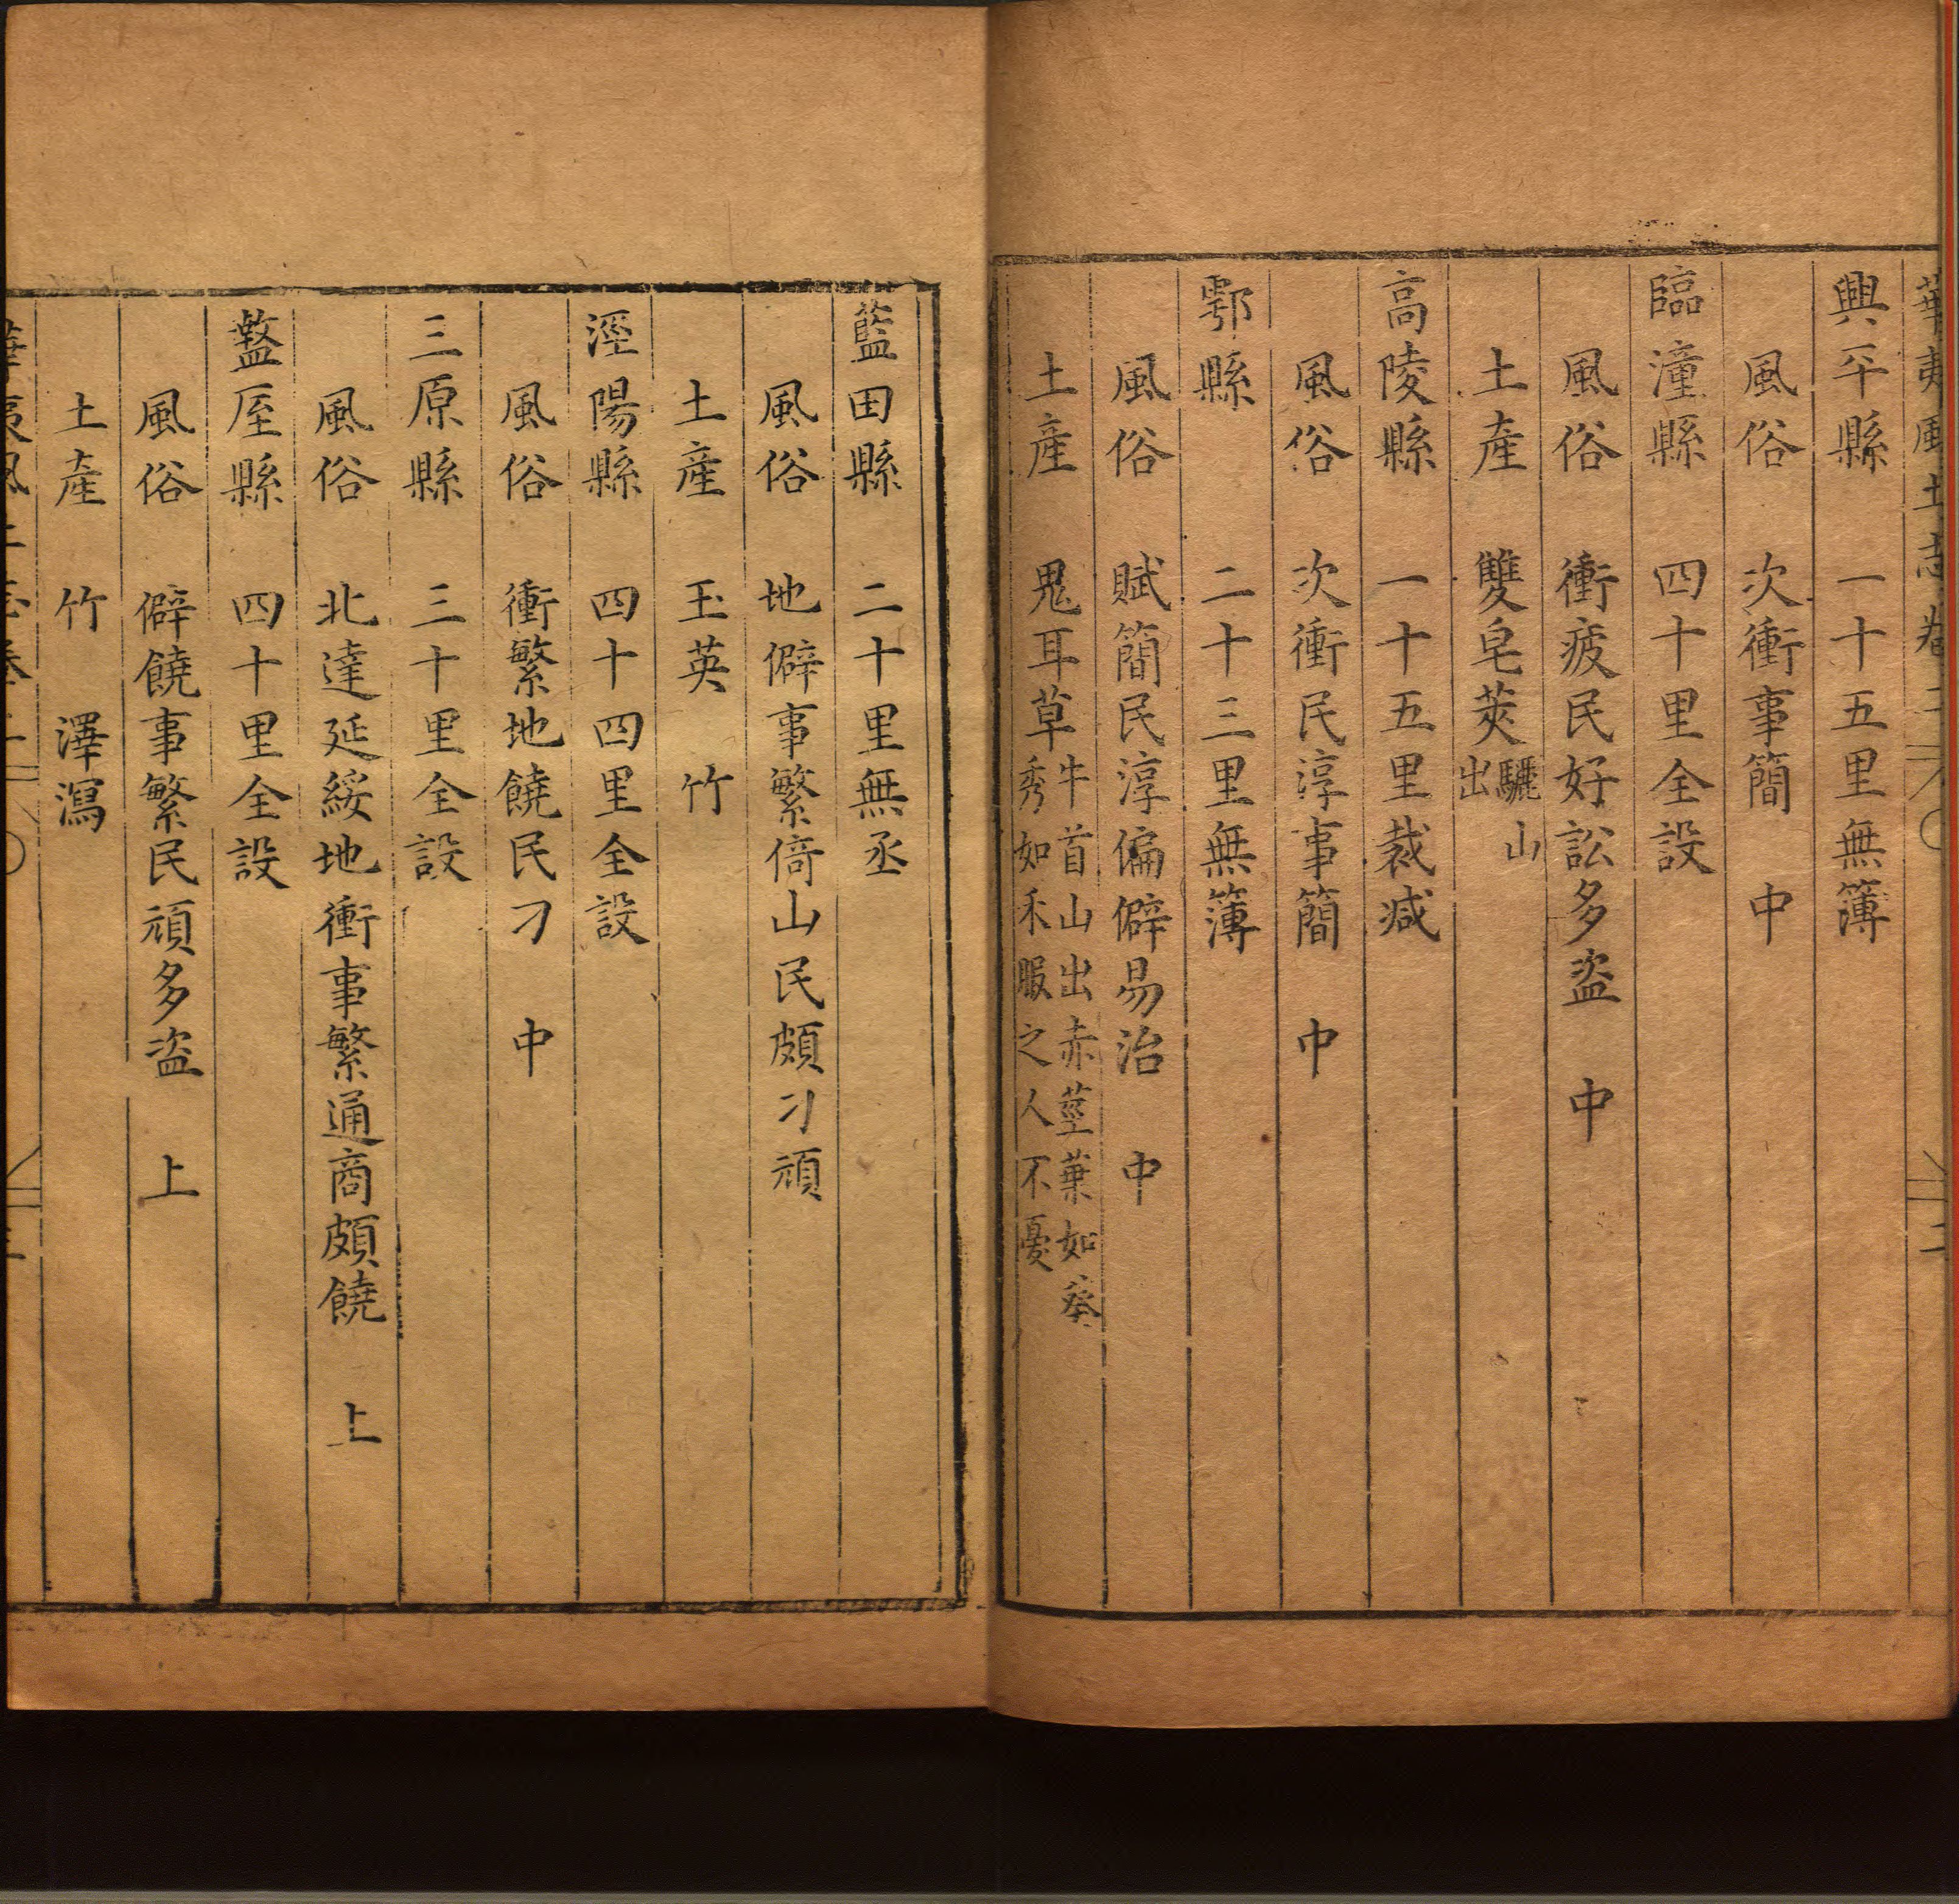 華夷風土志卷二 二
興平縣 一十五里無簿
風俗 次衝事簡 中
臨潼縣 四十里全設
風俗 衝疲民好訟多盜 中
土產 雙皂莢驪山出
高陵縣 一十五里裁減
風俗 次衝民淳事簡 中
鄠縣 二十三里無簿
風俗 賦簡民淳偏僻易治 中
土產 鬼耳草牛首山出赤莖葉如葵
秀如禾服之人不憂
藍田縣 二十里無丞
風俗 地僻事繁倚山民頗刁頑
土產 玉英 竹
涇陽縣 四十四里全設
風俗 衝繁地饒民刁 中
三原縣 三十里全設
風俗 北達延綏地衝事繁通商頗饒 上
盩厔縣 四十里全設
風俗 僻饒事繁民頑多盜 上
土產 竹 澤瀉